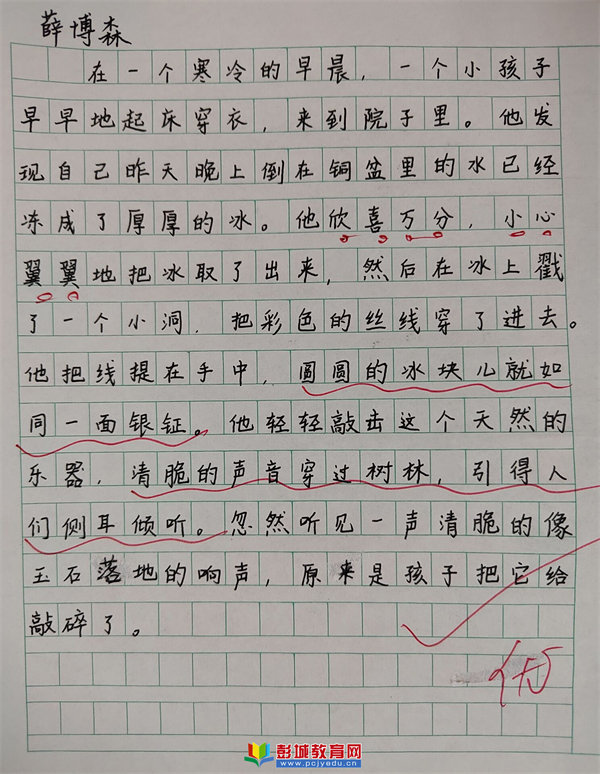 薛博森
在一个寒冷的早晨，一个小孩子
早早地起床穿衣，来到院子里。他发
现自己昨天晚上倒在铜盆里的水已经
冻成了厚厚的冰。他欣喜万分，小心
翼翼地把冰取了出来，然后在冰上戳
了一个小洞，把彩色的丝线穿了进去。
他把线提在手中，圆圆的冰块儿就如
同一面银钲。他轻轻敲击这个天然的
乐器，清脆的声音穿过树林，引得人
们侧耳倾听。忽然听见一声清脆的像
玉石落地的响声，原来是孩子把它给
敲碎了。
优
彭城教育网
www.pcjyedu.cn